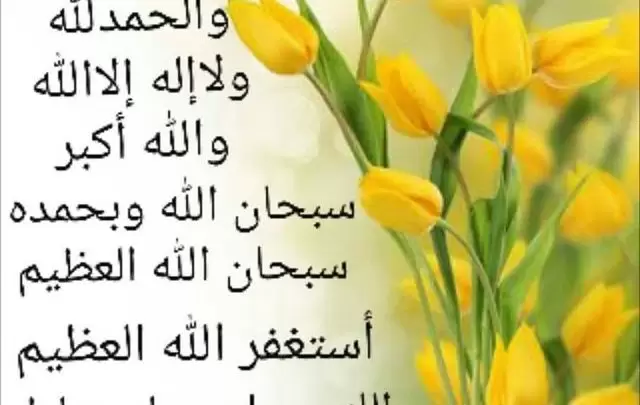 والحمدلله
ولاإله إلاالله
والله أكبر
سبحان الله وبحمده
سبحان الله العظيم
أستغفر الله العظيم